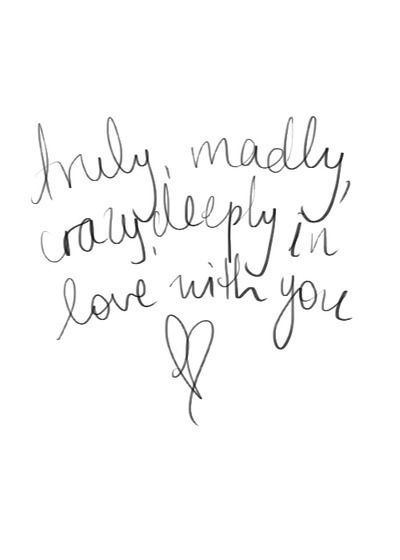 truly, madly,
crazy, deeply in
love with you